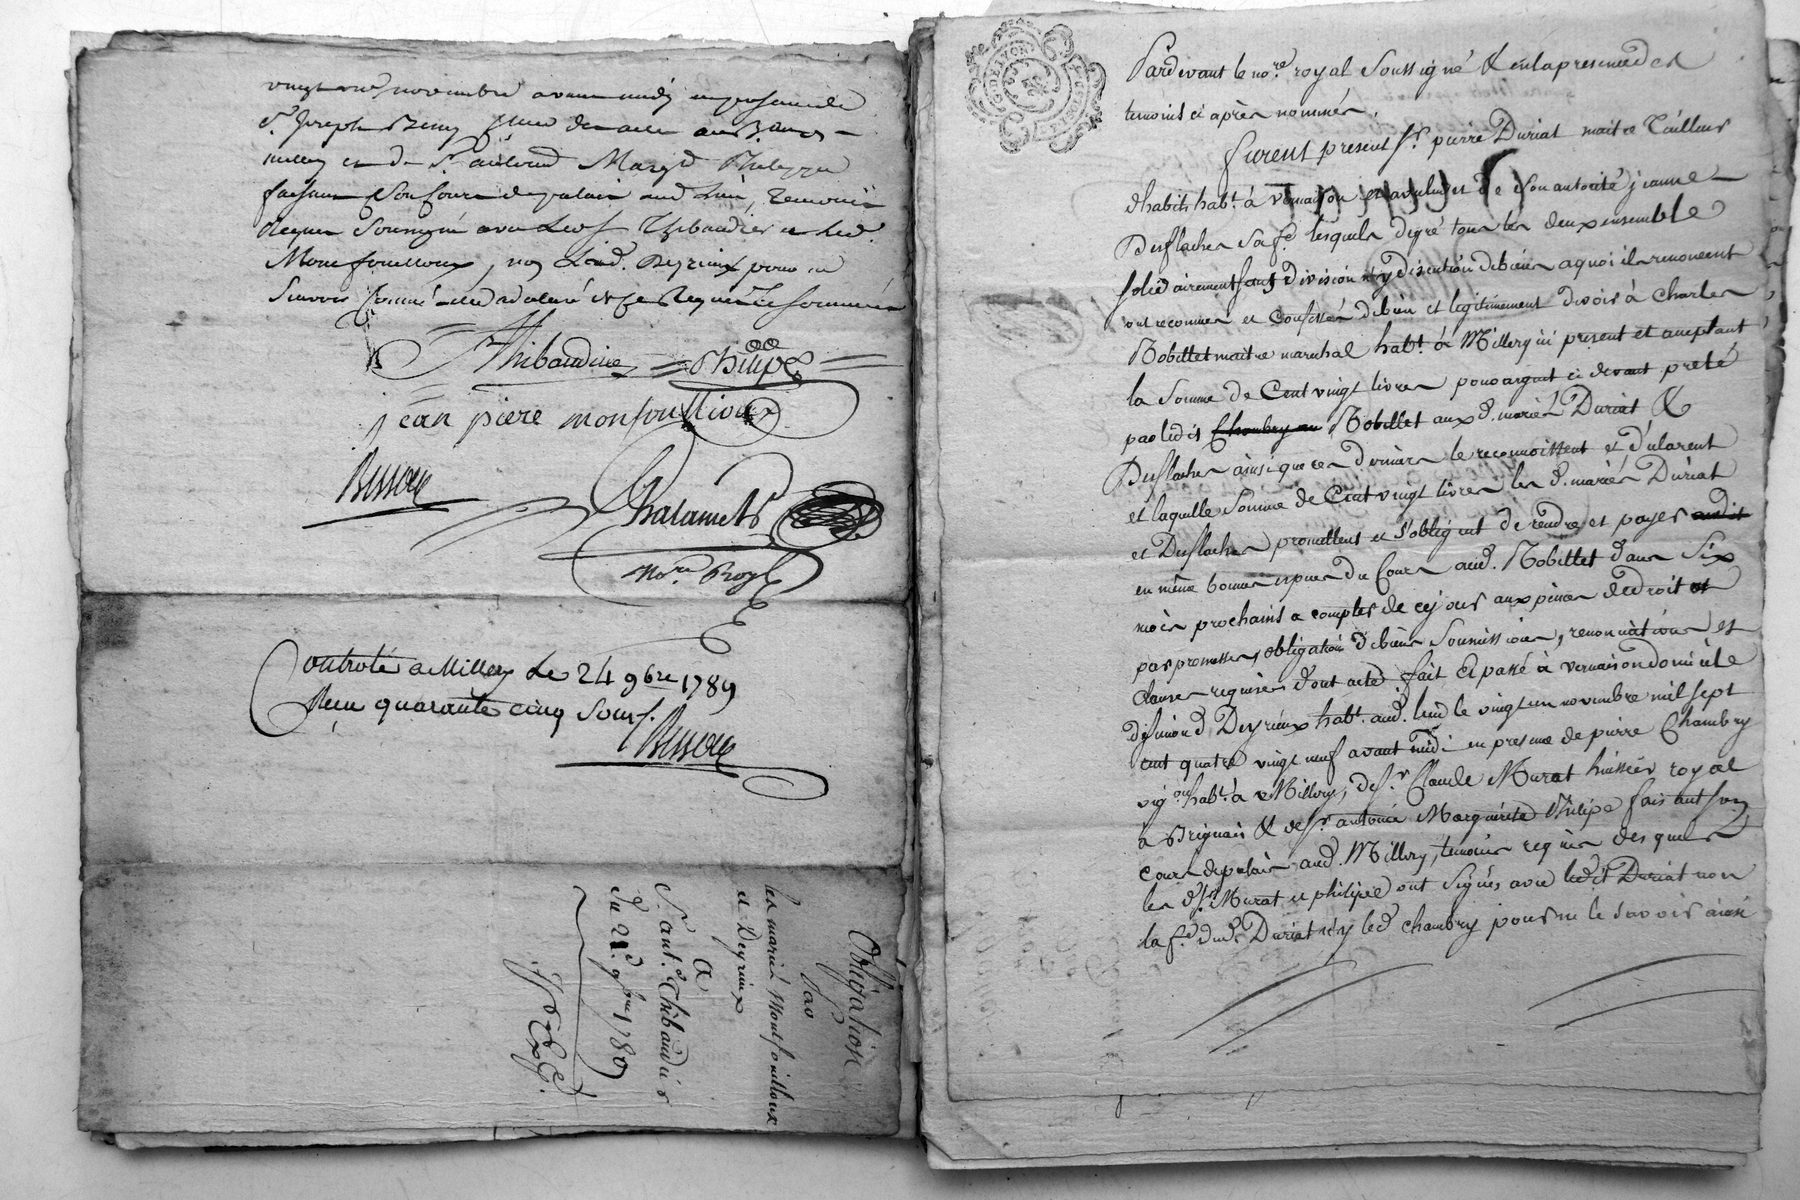 vingt un novembre avant midi en presence de
Sr. Joseph
et de Sr. antoine Margd. Philippe
faisant Son Cours de palais aud. lieu, Temoins
requis Soussignés avec Led. Sr. Thibaudier et Led.
Montfouilloux, non Lad. Deyrieux pour ne
Scavoir Signer de ce Requise & Sommée
Thibaudier Philipe
jean piere monfoullioux
Bessou
Chalamet
Nore. Royl
Controlé a Millery Le 24 9bre 1789
Reçu quarante cinq Sous.
Bessou
Obligation
par
les mariés Montfouilloux
et Deyrieux
a
Sr. ant. Thibaudier
du 21e. 9bre 1789
Pardevant le nore. royal Soussigné & en la presence des
temoins ci après nommés,
furent present Sr. pierre Duriat maitre Tailleur
d'habits habt. à vernaison et de Son autorité jeanne
Desflaches Sa fe. lesquels de gré tous les deux ensemble
Solidairement Sans division ny discution de biens a quoi ils renoncent
ont reconnu et Confessé de bien et legitimement devoir à Charles
Robillet maitre marechal habt. à Millery ici present et acceptant
la Somme de Cent vingt livres pour argent ci devant preté
par ledit Chambry au Robillet auxd. mariés Duriat &
Desflaches ainsi que ces derniers le reconnoissent et déclarent
et laquelle Somme de Cent vingt livres les d. mariés Duriat
et Desflaches promettent et S'obligent de rendre et payer audit
en même bonnes especes du Cours aud. Robillet dans Six
mois prochains a compter de ce jour aux peines de droit et
par promesses, obligation de biens Soumissions, renonciations et
Clauses requises dont acte fait et passé à vernaison domicile
de Simond Deyrieux habt. aud. lieu le vingt un novembre mil sept
cent quatre vingt neuf avant midi en presence de pierre Chambry
vigon. habt. à Millery, de Sr. Claude Murat huissier royal
à Brignais & de Sr. antoine Marguerite Philipe faisant Son
Cours de palais aud. Millery, temoins requis des quels
les d. Srs. Murat et philipe ont Signés avec ledit Duriat non
la fe. dud. Duriat n'y led. chambry pour ne le Savoir ainsi